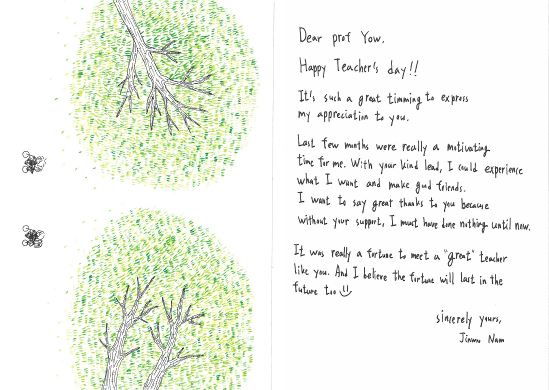 Dear prof Yow.
Happy Teacher's day!!
It's such a great timming to express
my appreciation to you.
Last few months were really a motivating
time for me. With your kind lead, I could experience
what I want and make good friends.
I want to say great thanks to you because
without your support, I must have done nothing until now.
It was really a fortune to meet a "great" teacher
like you. And I believe the fortune will last in the
future too
sincerely yours,
Nam